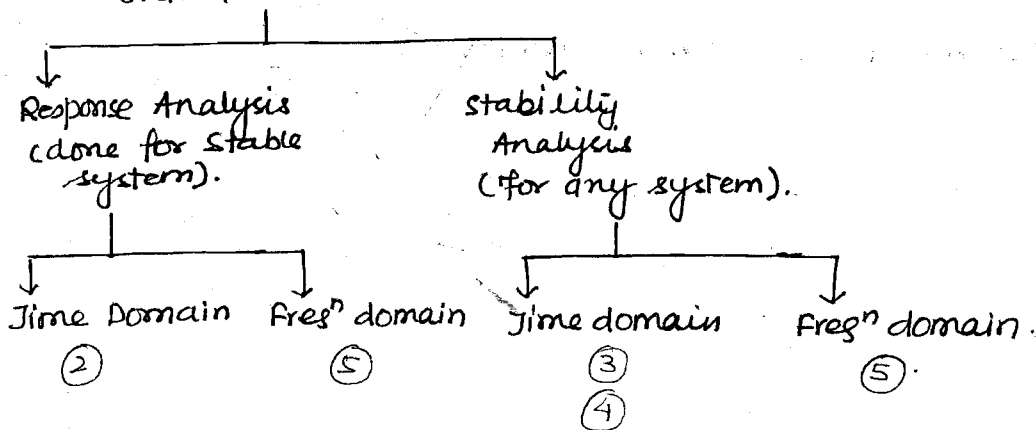 Response Analysis
(done for stable
system).
stability
Analysis
(for any system).
Time Domain
Freqⁿ domain
Time domain
Freqⁿ domain.
②
⑤
③
⑤.
④